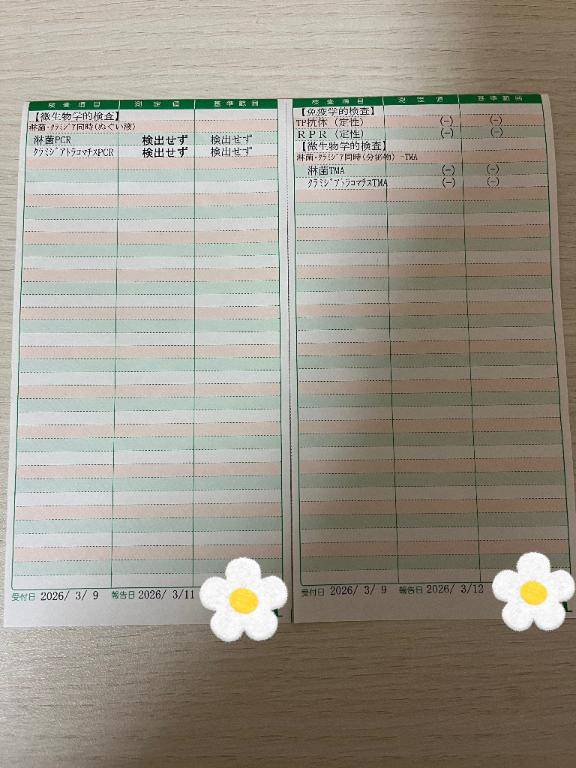 検査項目 測定値 基準範囲
【微生物学的検査】
淋菌・クラミジア同時(ぬぐい液)
淋菌PCR 検出せず 検出せず
クラミジアトラコマチスPCR 検出せず 検出せず
受付日 2026/ 3/ 9 報告日 2026/ 3/11
検査項目 測定値 基準範囲
【免疫学的検査】
TP抗体(定性) (-) (-)
RPR(定性) (-) (-)
【微生物学的検査】
淋菌・クラミジア同時(分泌物)-TMA
淋菌TMA (-) (-)
クラミジアトラコマチスTMA (-) (-)
受付日 2026/ 3/ 9 報告日 2026/ 3/12